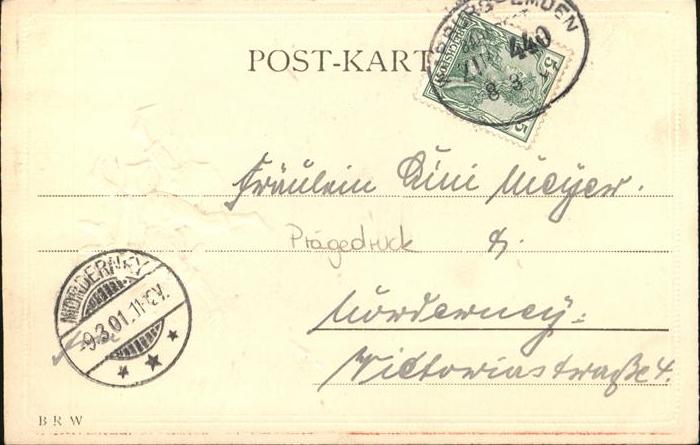 POST-KART
EMDEN
ZUG 440
8 3
5
5
Fräulein Lini Meyer.
Prägedruck
Norderney.
Victoriastraße 4.
NORDERNEY
9.3.01.11-12V.
B R W